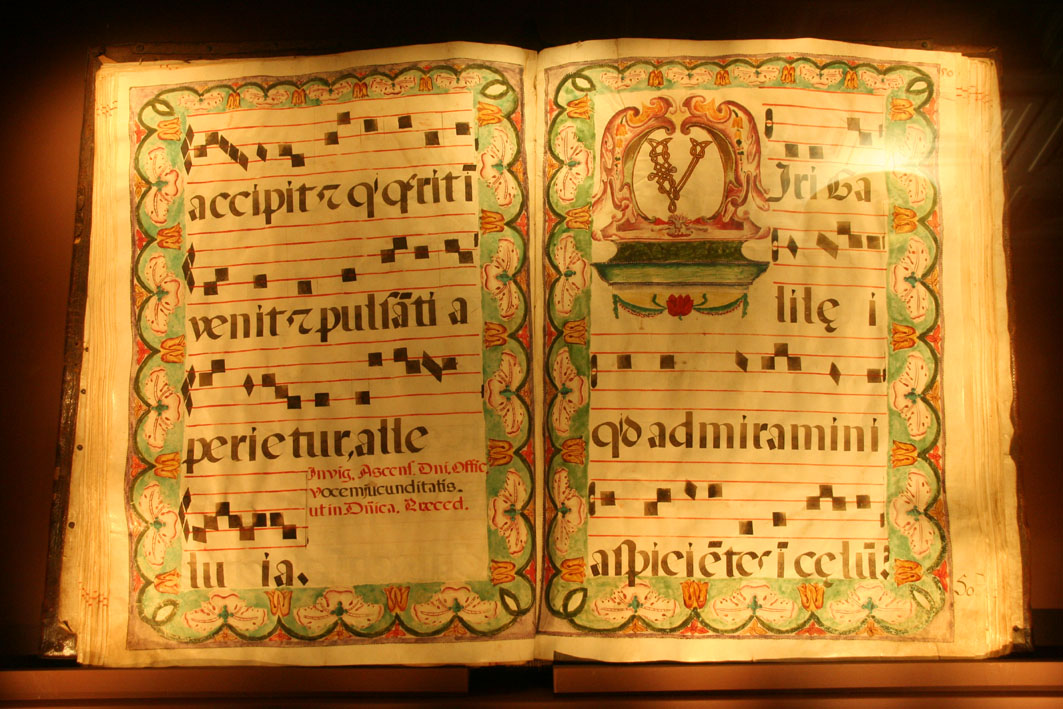 accipit ⁊ q' q̄rit ī
venit ⁊ pulsāti a
perietur, alle
Invig. Ascens. Dni. Offic
vocem jucunditatis.
ut in Dñica. Præced.
lu ia.
V Iri Ga
lilę i
q'd admiramini
aspiciētes ī cęlū?
50